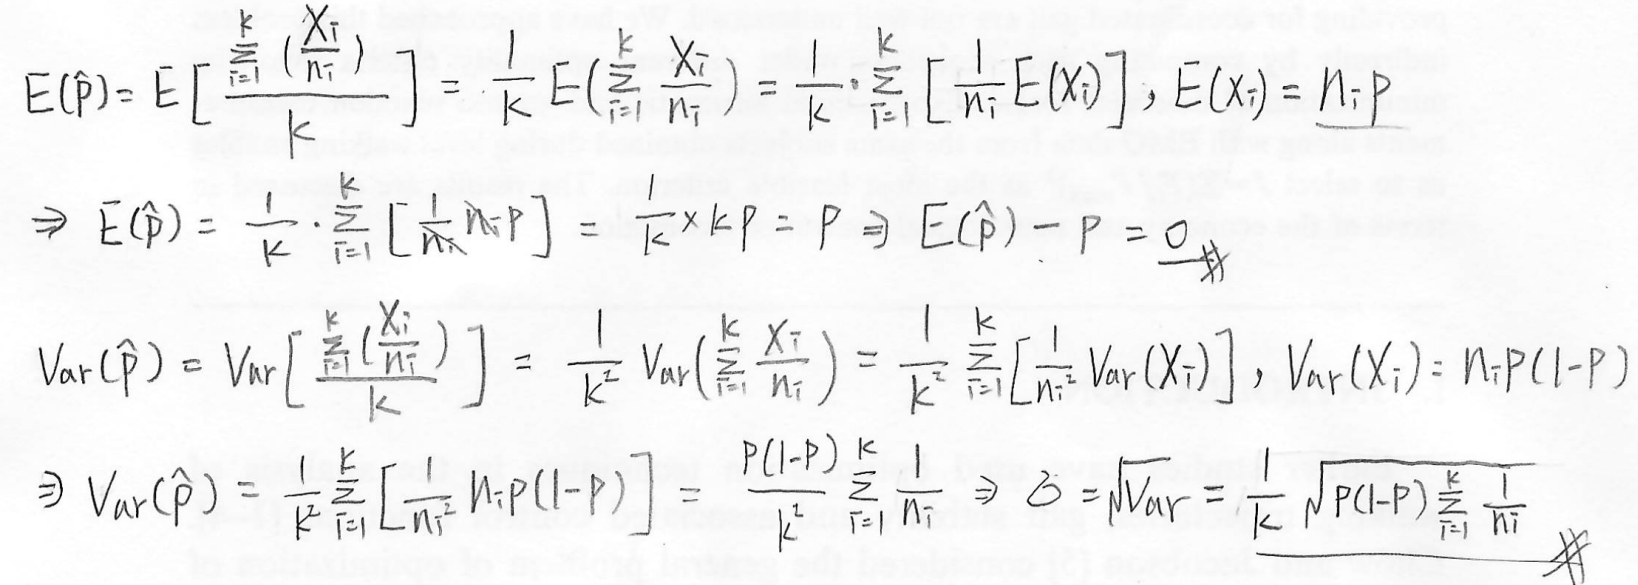 E(p̂) = E[ Σ_{i=1}^{k} (Xi/ni) / k ] = 1/k E( Σ_{i=1}^{k} Xi/ni ) = 1/k · Σ_{i=1}^{k} [ 1/ni E(Xi) ] , E(Xi) = ni p
⇒ E(p̂) = 1/k · Σ_{i=1}^{k} [ 1/ni ni p ] = 1/k × k p = p ⇒ E(p̂) p = 0 #
Var(p̂) = Var[ Σ_{i=1}^{k} (Xi/ni) / k ] = 1/k² Var( Σ_{i=1}^{k} Xi/ni ) = 1/k² Σ_{i=1}^{k} [ 1/ni² Var(Xi) ] , Var(Xi) = ni p(1-p)
⇒ Var(p̂) = 1/k² Σ_{i=1}^{k} [ 1/ni² ni p(1-p) ] = p(1-p)/k² Σ_{i=1}^{k} 1/ni ⇒ σ = √Var = 1/k √( p(1-p) Σ_{i=1}^{k} 1/ni ) #